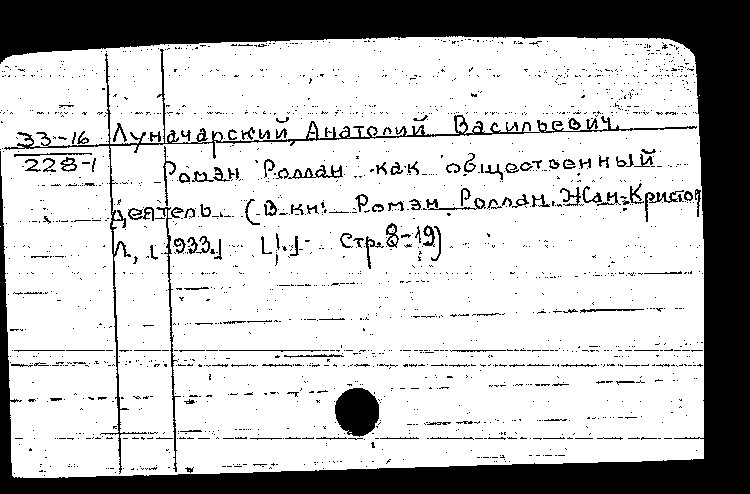 33-16 Луначарский, Анатолий Васильевич.
228-1 Ромэн Роллан как общественный
деятель. (В кн: Ромэн Роллан. Жан-Кристоф
Л., [1933.] Стр. 8-19)